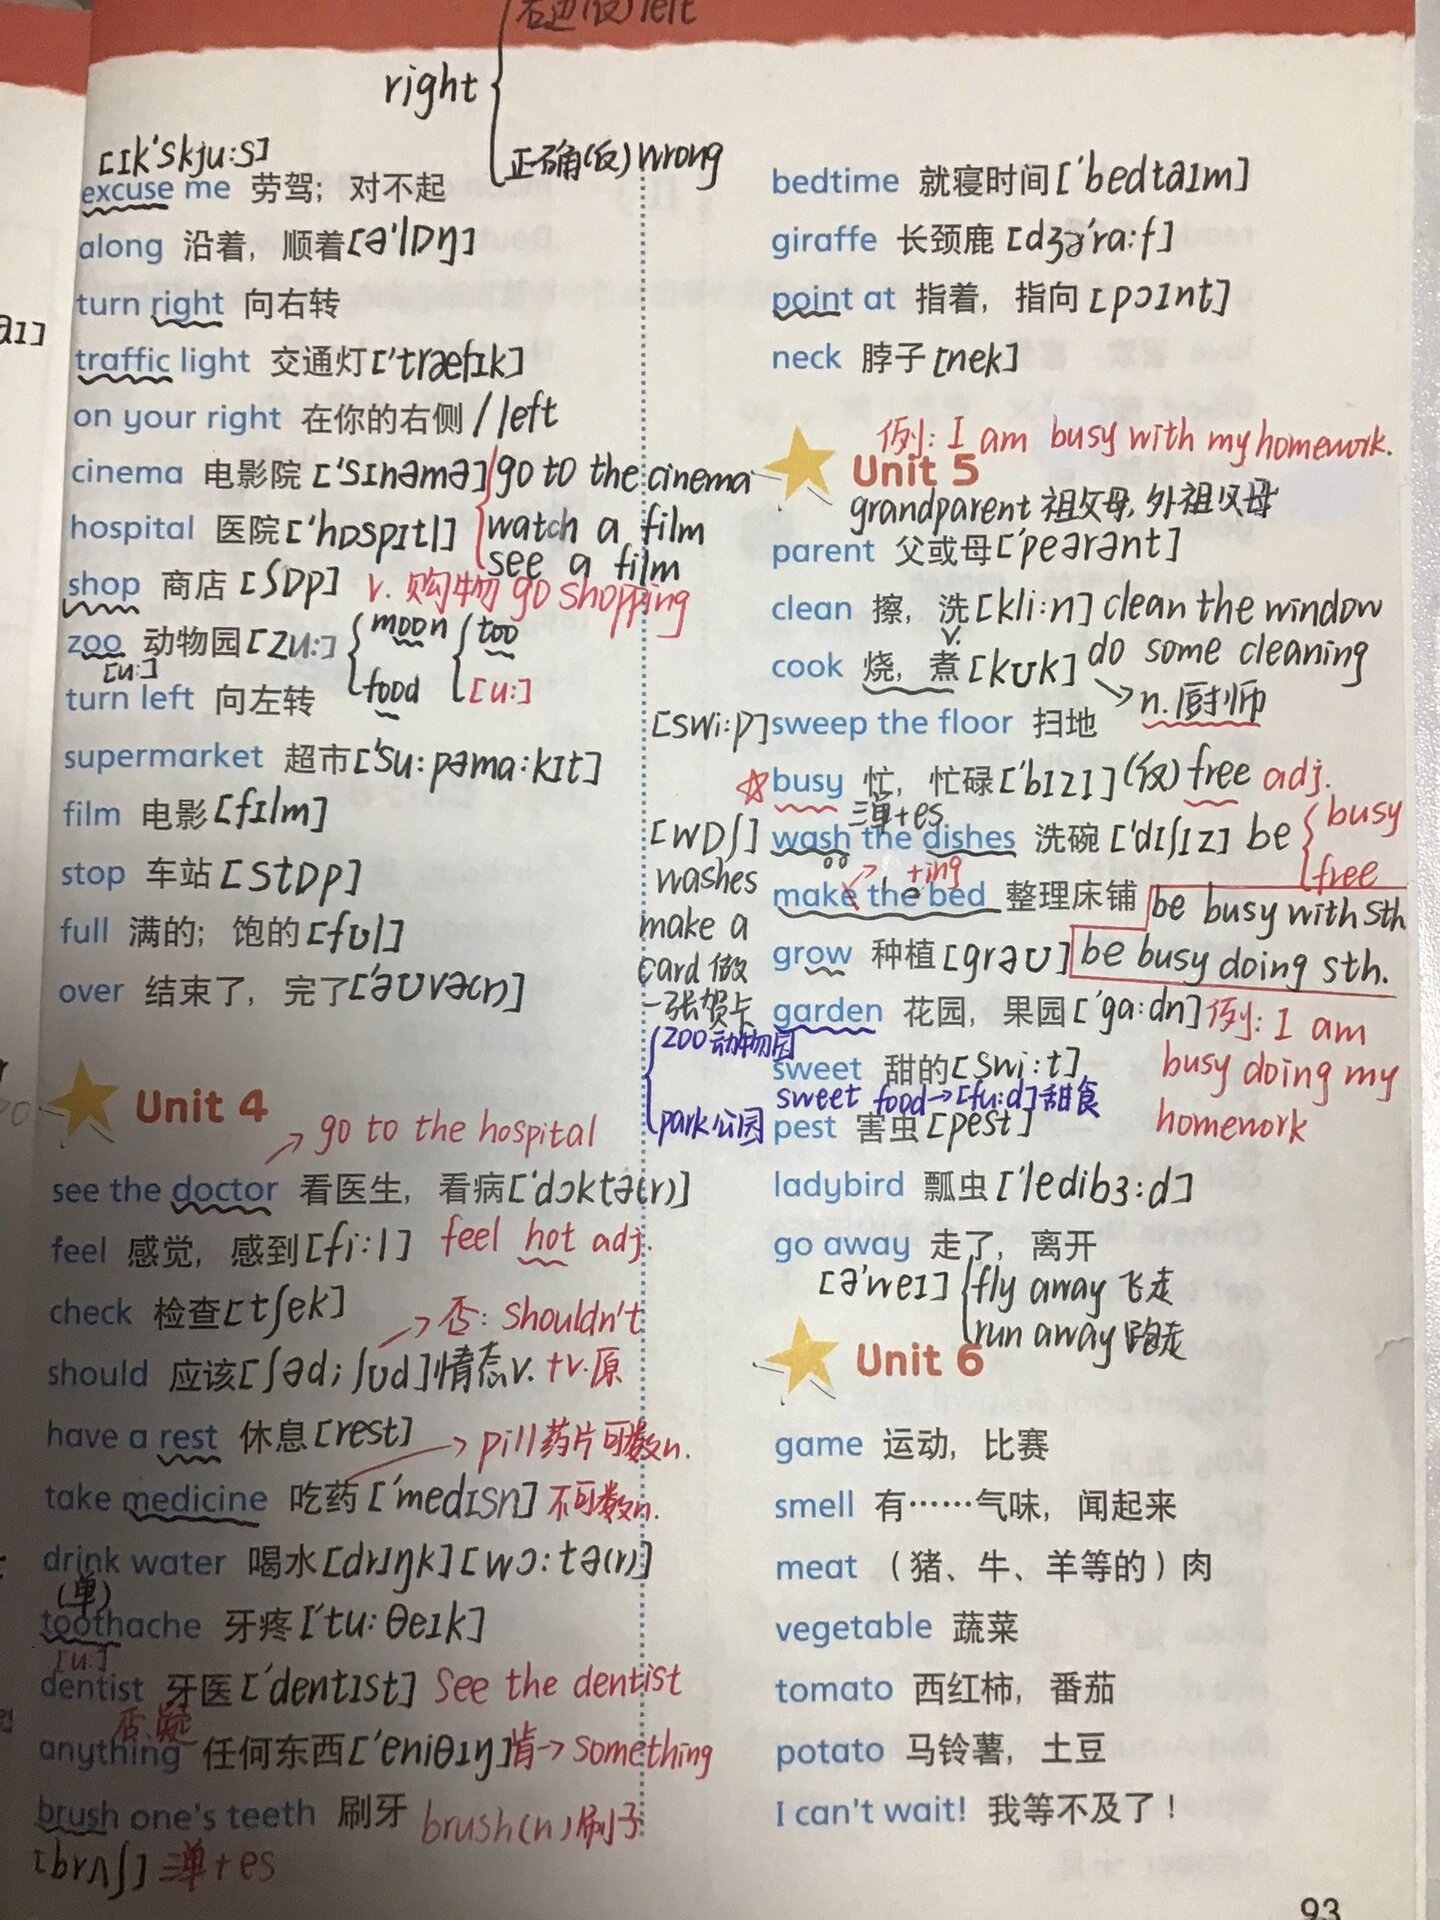 右边(反) left
right
正确(反) wrong
[ɪk'skju:s]
excuse me 劳驾；对不起
along 沿着，顺着 [ə'lɒŋ]
turn right 向右转
traffic light 交通灯 ['træfɪk]
on your right 在你的右侧 / left
cinema 电影院 ['sɪnəmə] go to the cinema
hospital 医院 ['hɒspɪtl] watch a film
see a film
shop 商店 [ʃɒp] v. 购物 go shopping
zoo 动物园 [zu:] moon too
[u:] food [u:]
turn left 向左转
supermarket 超市 ['su:pəma:kɪt]
film 电影 [fɪlm]
stop 车站 [stɒp]
full 满的；饱的 [fʊl]
over 结束了，完了 ['əʊvə(r)]
Unit 4
go to the hospital
see the doctor 看医生，看病 ['dɔktə(r)]
feel 感觉，感到 [fi:l] feel hot adj.
check 检查 [tʃek]
否: shouldn't
should 应该 [ʃəd; ʃʊd] 情态v. +v.原
have a rest 休息 [rest] pill 药片 可数n.
take medicine 吃药 ['medɪsn] 不可数n.
drink water 喝水 [drɪŋk] [wɔ:tə(r)]
(单)
toothache 牙疼 ['tu:θeɪk]
[u:]
dentist 牙医 ['dentɪst] see the dentist
否.疑
anything 任何东西 ['eniθɪŋ] 肯→something
brush one's teeth 刷牙 brush(n) 刷子
[brʌʃ] 三单+es
bedtime 就寝时间 ['bedtaɪm]
giraffe 长颈鹿 [dʒə'ra:f]
point at 指着，指向 [pɔɪnt]
neck 脖子 [nek]
例: I am busy with my homework.
Unit 5
grandparent 祖父母, 外祖父母
parent 父或母 ['peərənt]
clean 擦，洗 [kli:n] clean the window
v. do some cleaning
cook 烧，煮 [kʊk]
n. 厨师
[swi:p] sweep the floor 扫地
busy 忙，忙碌 ['bɪzɪ] (反) free adj.
三单+es
[wɒʃ] wash the dishes 洗碗 ['dɪʃɪz] be busy
washes free
+ing
make the bed 整理床铺 be busy with sth
make a card 做一张贺卡
grow 种植 [grəʊ] be busy doing sth.
garden 花园，果园 ['ga:dn] 例: I am busy doing my homework
zoo 动物园
park 公园
sweet 甜的 [swi:t]
sweet food→[fu:d] 甜食
pest 害虫 [pest]
ladybird 瓢虫 ['ledibɜ:d]
go away 走了，离开
[ə'weɪ] fly away 飞走
run away 跑走
Unit 6
game 运动，比赛
smell 有……气味，闻起来
meat （猪、牛、羊等的）肉
vegetable 蔬菜
tomato 西红柿，番茄
potato 马铃薯，土豆
I can't wait! 我等不及了！
93